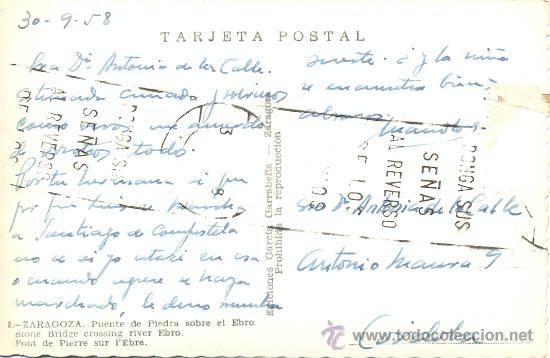 30-9-58
TARJETA POSTAL
Sra Dª Antonia de la Calle.
Estimada cuñada y sobrinos
a todos
Por tu hermana
por fin Luis se marcha
a Santiago de Compostela
no se si yo estaré en casa
o cuando regrese se haya
marchado, le deseo mucha
suerte. ¿ y la niña
se encuentra bien?
abrazos
Manolo
Sra Dª Antonia de la Calle
Antonio Maura 9
Córdoba
PONGA SUS
SEÑAS
AL REVERSO
DE LOS
PONGA SUS
SEÑAS
AL REVERSO
DE LOS
Ediciones García Garrabella - Zaragoza
Prohibida la reproducción
.-ZARAGOZA. Puente de Piedra sobre el Ebro.
Stone Bridge crossing river Ebro.
Pont de Pierre sur l'Ebre.
todocoleccion.net